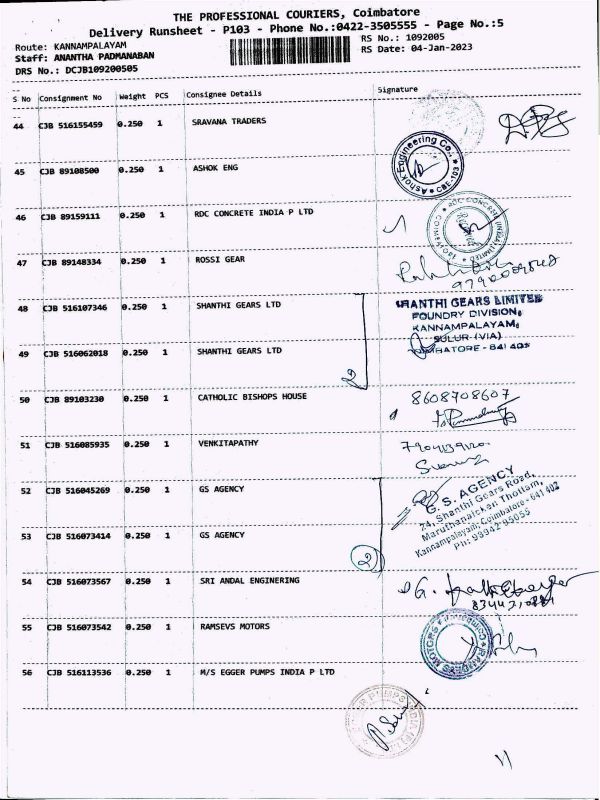 THE PROFESSIONAL COURIERS, Coimbatore
Delivery Runsheet - P103 - Phone No.:0422-3505555 - Page No.:5
Route: KANNAMPALAYAM
RS No.: 1092005
Staff: ANANTHA PADMANABAN
RS Date: 04-Jan-2023
DRS No.: DCJB109200505
S No Consignment No Weight PCS Consignee Details Signature
44 CJB 516155459 0.250 1 SRAVANA TRADERS
45 CJB 89108500 0.250 1 ASHOK ENG
Ashok Engineering Co. CBE-103
46 CJB 89159111 0.250 1 RDC CONCRETE INDIA P LTD
RDC CONCRETE (INDIA) LIMITED
47 CJB 89148334 0.250 1 ROSSI GEAR
48 CJB 516107346 0.250 1 SHANTHI GEARS LTD
SHANTHI GEARS LIMITED
FOUNDRY DIVISION,
KANNAMPALAYAM,
SULUR (VIA)
49 CJB 516062018 0.250 1 SHANTHI GEARS LTD
COIMBATORE - 641 402
2
50 CJB 89103230 0.250 1 CATHOLIC BISHOPS HOUSE
8608708607
51 CJB 516085935 0.250 1 VENKITAPATHY
52 CJB 516045269 0.250 1 GS AGENCY
G. S. AGENCY
24, Shanthi Gears Road,
Maruthanaickan Thottam,
Kannampalayam, Coimbatore - 641 402
Ph: 99942 95055
53 CJB 516073414 0.250 1 GS AGENCY
2
54 CJB 516073567 0.250 1 SRI ANDAL ENGINERING
55 CJB 516073542 0.250 1 RAMSEVS MOTORS
56 CJB 516113536 0.250 1 M/S EGGER PUMPS INDIA P LTD
11